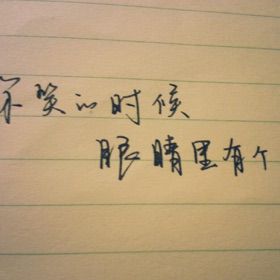 笑的时候
眼睛里有个